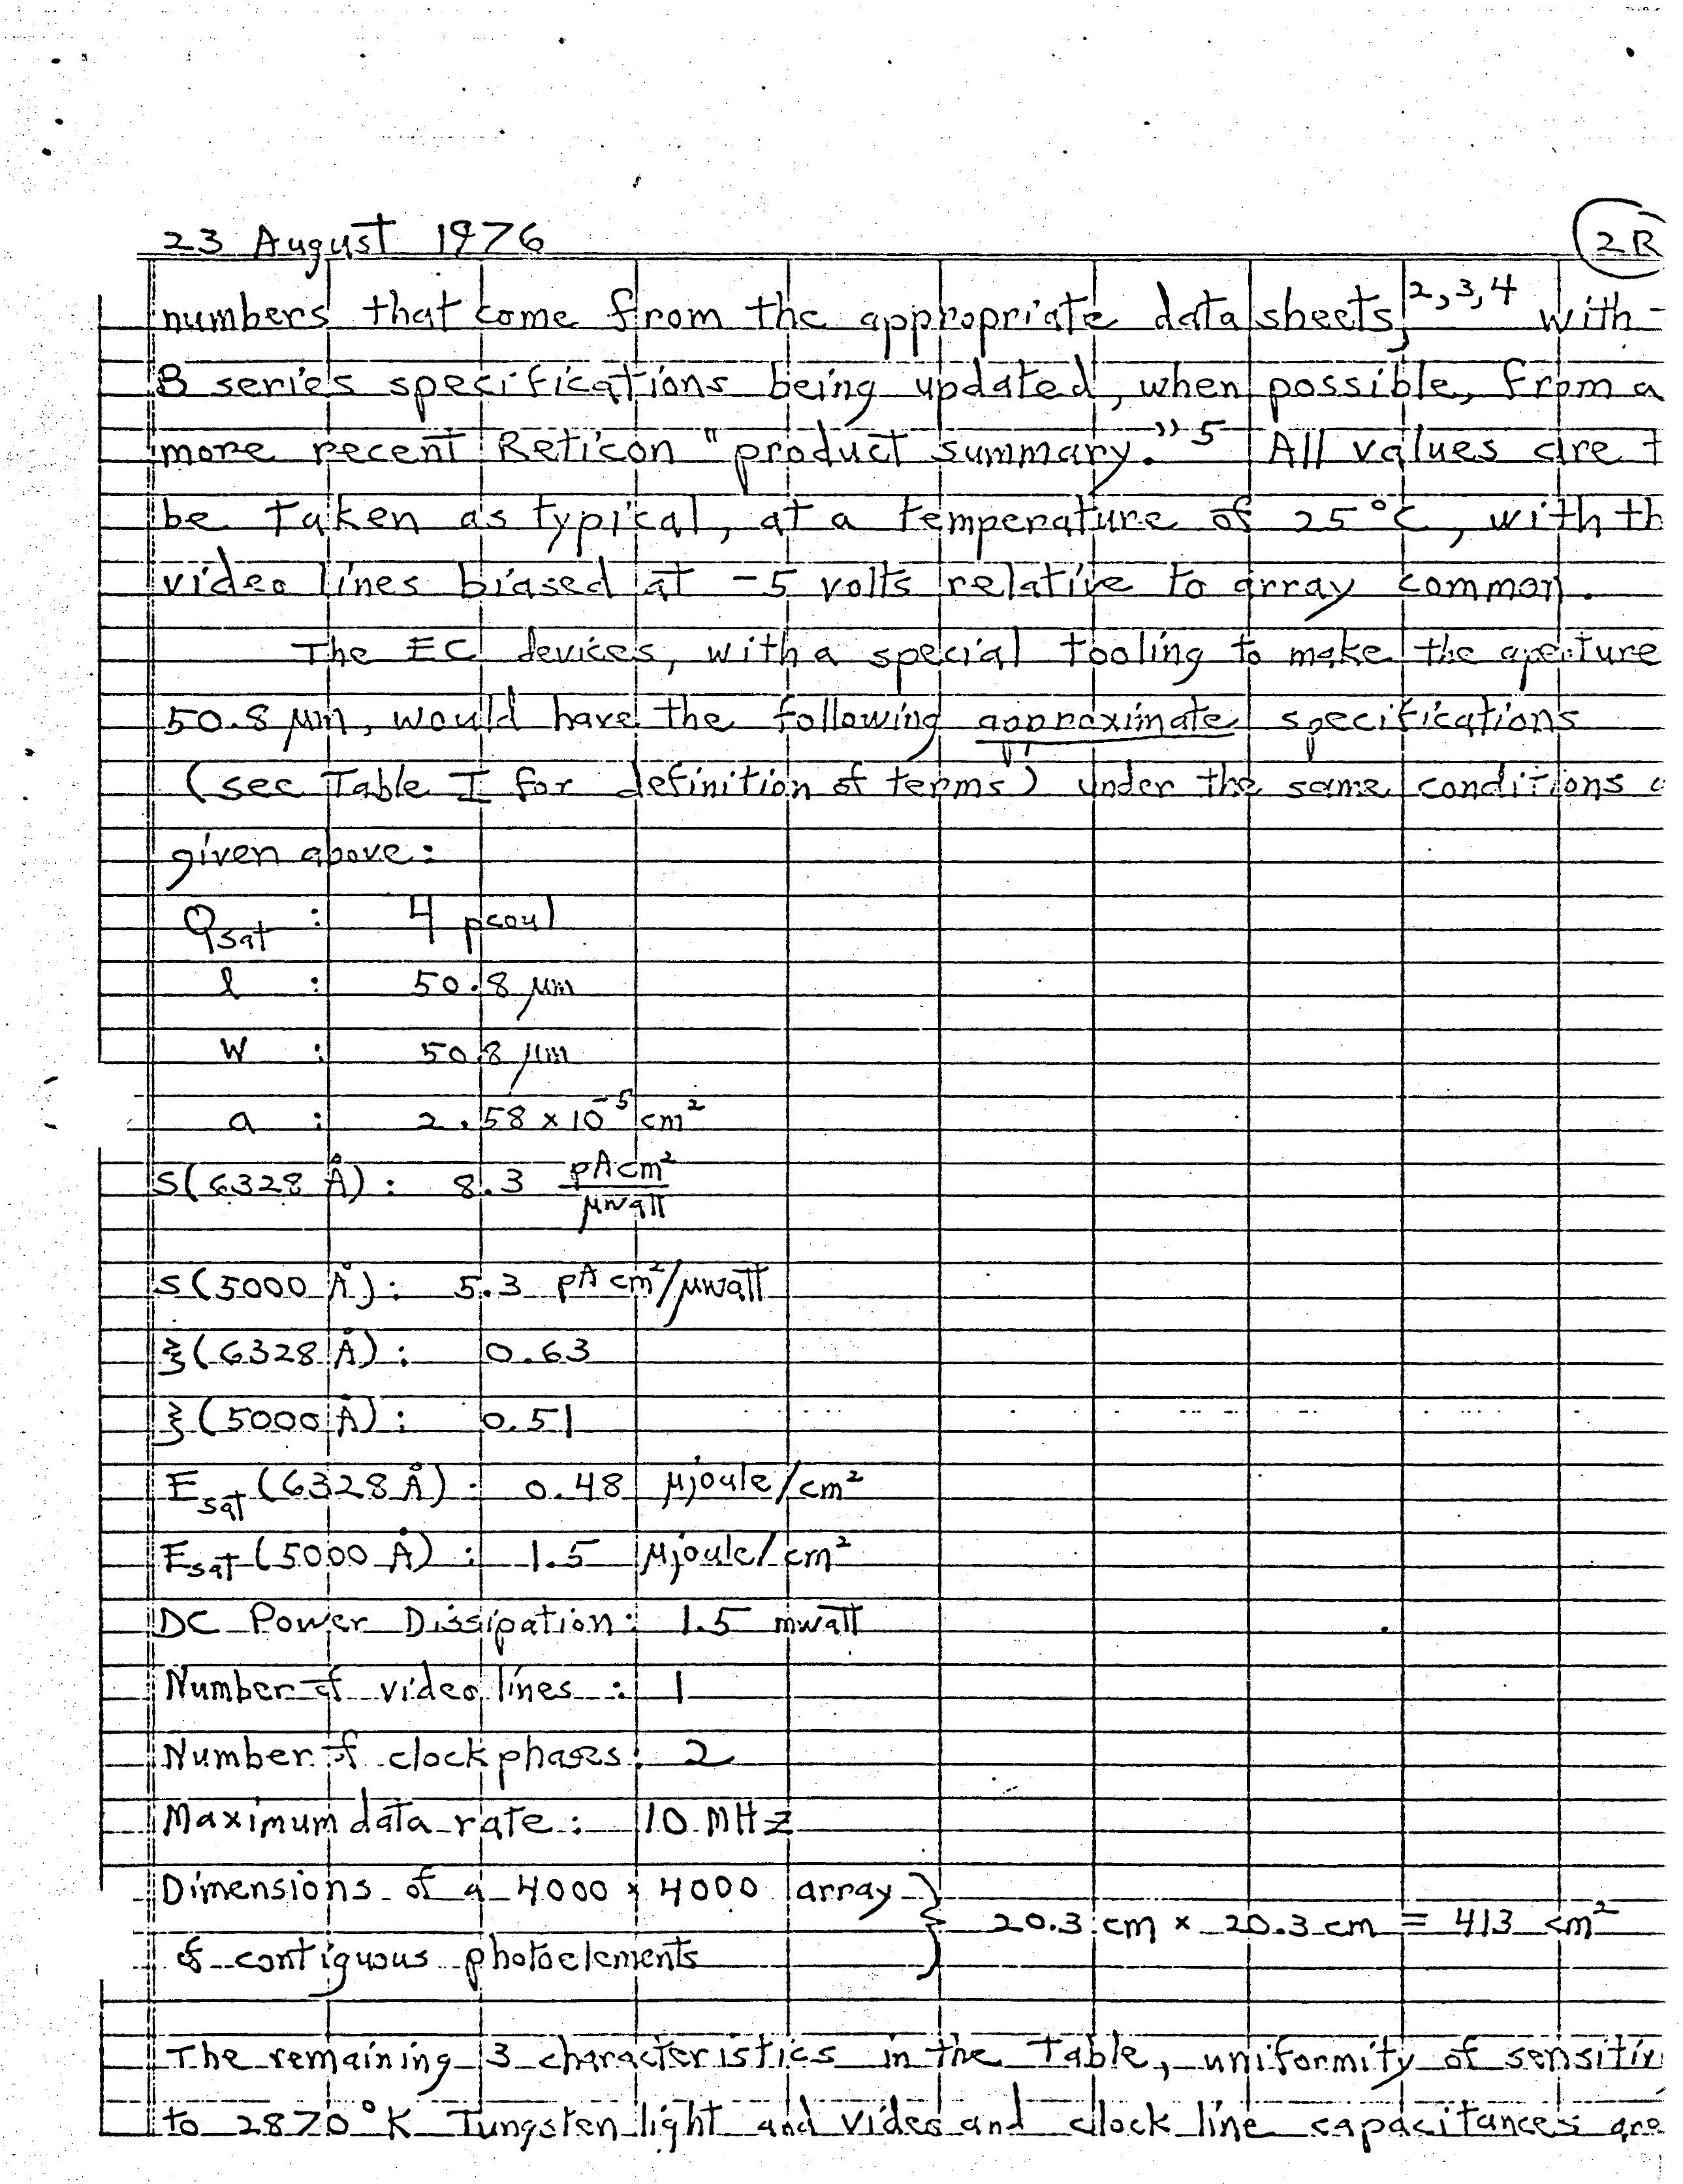 23 August 1976
2R
numbers that come from the appropriate data sheets,2,3,4 with
B series specifications being updated, when possible, from a
more recent Reticon "product summary."5 All values are t
be taken as typical, at a temperature of 25°C, with th
video lines biased at -5 volts relative to array common.
The EC devices, with a special tooling to make the aperture
50.8 μm, would have the following approximate specifications
(see Table I for definition of terms) under the same conditions a
given above:
Qsat : 4 pcoul
l : 50.8 μm
w : 50.8 μm
a : 2.58 x 10⁻⁵ cm²
S(6328 Å): 8.3 pAcm²/μwatt
S(5000 Å): 5.3 pA cm²/μwatt
ξ(6328 Å): 0.63
ξ(5000 Å): 0.51
Esat (6328 Å): 0.48 μjoule/cm²
Esat (5000 Å): 1.5 μjoule/cm²
DC Power Dissipation: 1.5 mwatt
Number of video lines : 1
Number of clock phases: 2
Maximum data rate: 10 MHz
Dimensions of a 4000 x 4000 array
of contiguous photoelements } 20.3 cm x 20.3 cm = 413 cm²
The remaining 3 characteristics in the Table, uniformity of sensitiv
to 2870°K Tungsten light and video and clock line capacitances are